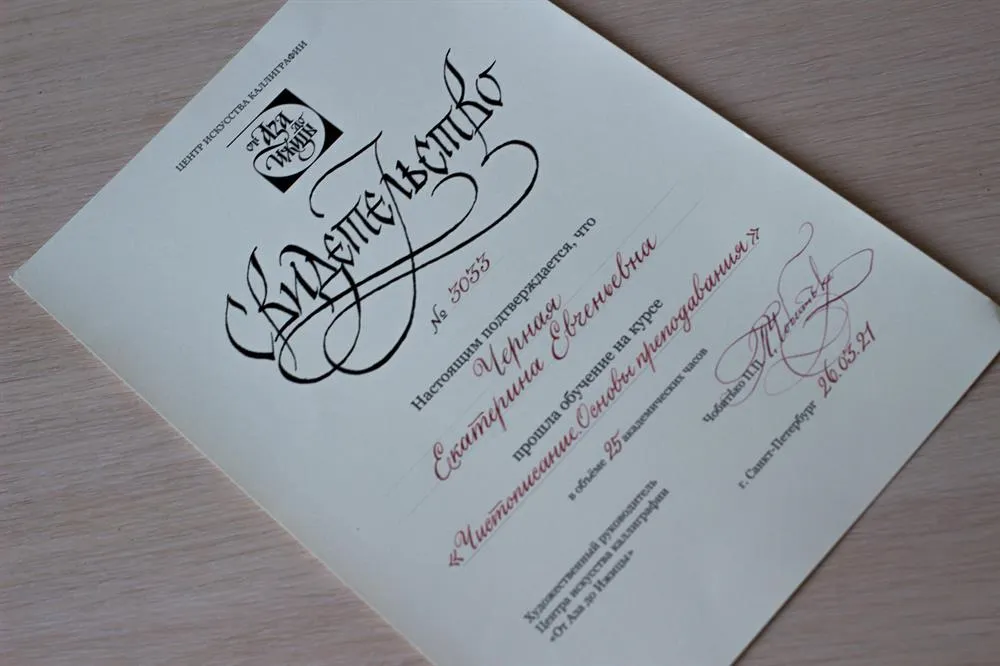 ЦЕНТР ИСКУССТВА КАЛЛИГРАФИИ
ОТ АЗА
ДО
ИЖИЦЫ
Свидетельство
№ 3033
Настоящим подтверждается, что
Черная
Екатерина Евгеньевна
прошла обучение на курсе
«Чистописание. Основы преподавания»
в объёме 25 академических часов
Художественный руководитель
Центра искусства каллиграфии
«От Аза до Ижицы»
Чобитько П.П.
г. Санкт-Петербург 26.03.21